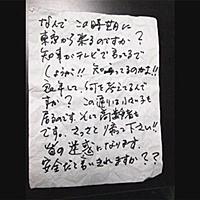 なんでこの時期に
東京から来るのですか？
知事がテレビで言ってるで
しょうが！！知ってるのかよ！！
良い年して何を考えてるんで
すか？この通りは小さい子も
居るのです。そして高齢者も
です。さっさと帰って下さい！！
皆の迷惑になります。
安全だと言いきれますか？？